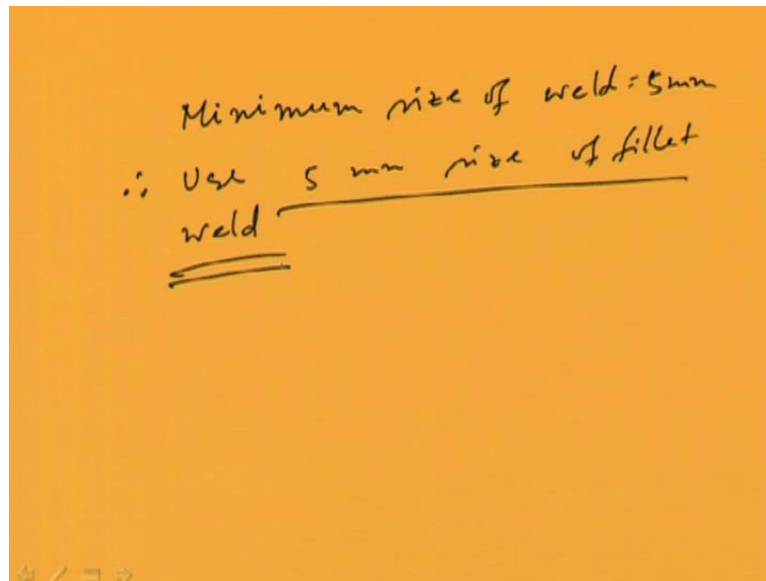 Minimum size of weld = 5mm
∴ Use 5 mm size of fillet
weld